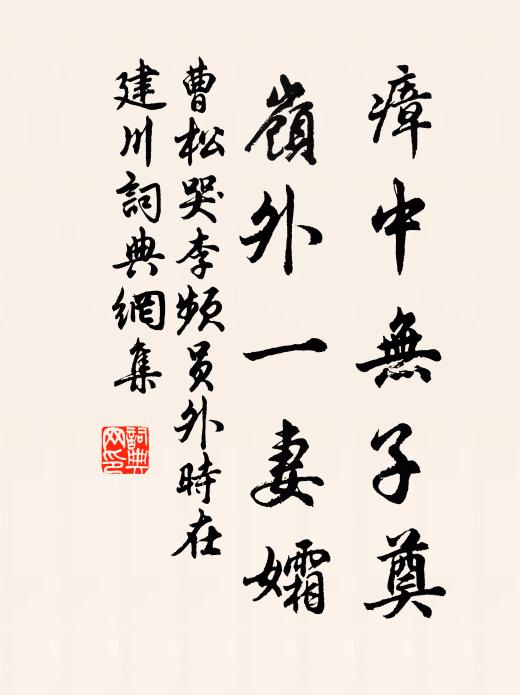 瘴中無子奠
嶺外一妻孀
曹松哭李頻员外時在
建川詞典網集
詞典網印